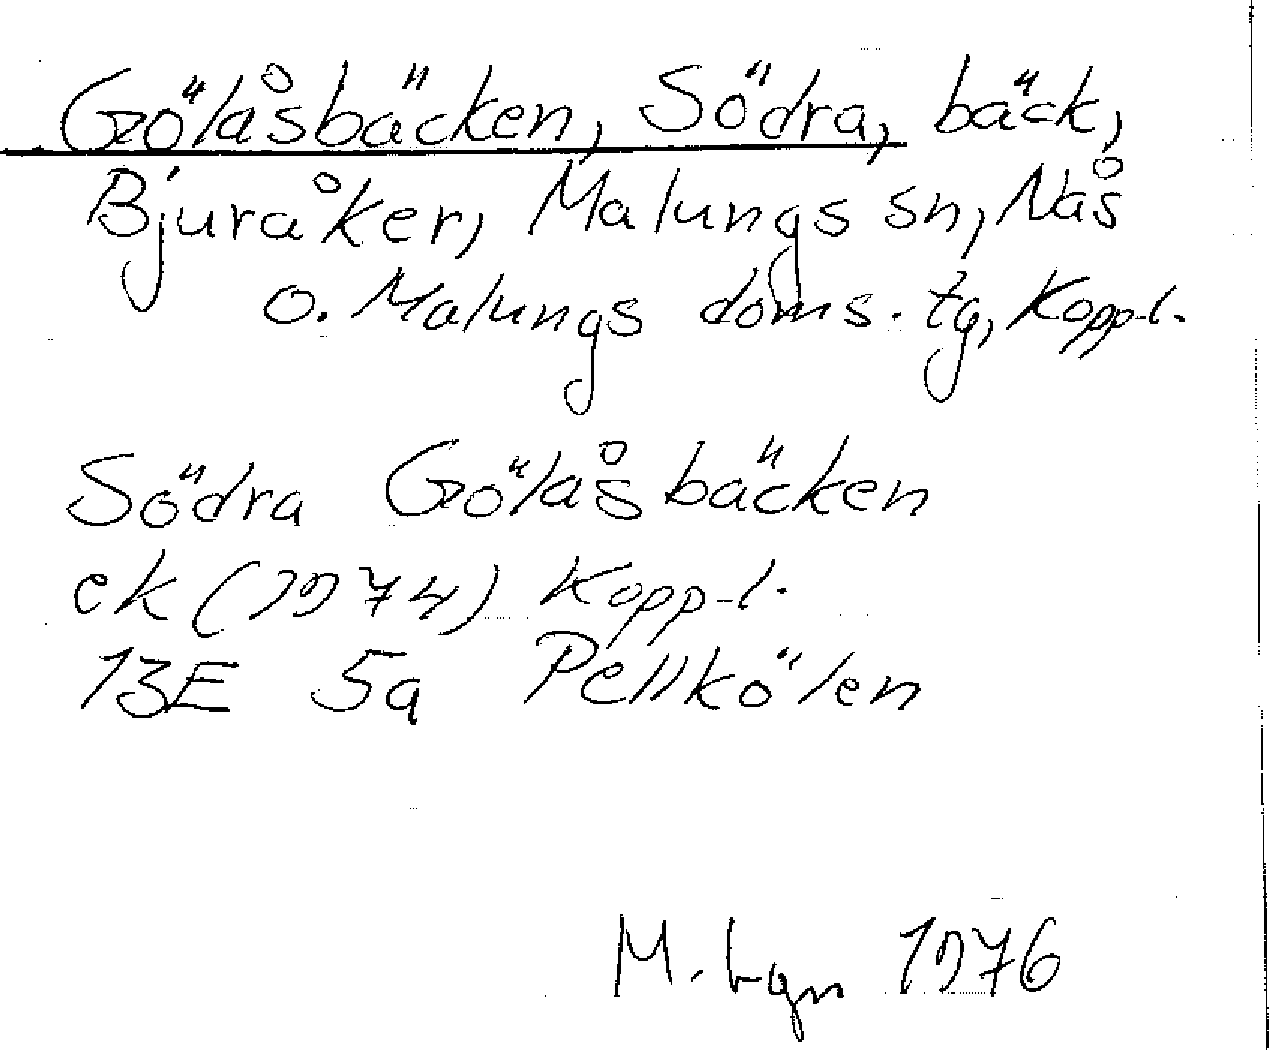 Gölåsbäcken, Södra, bäck,
Bjuråker, Malungs sn, Nås
o. Malungs doms. tg, Kopp.l.
Södra Gölåsbäcken
ek (1974) Kopp.l.
13E 5a Pellkölen
M. Lgn 1976